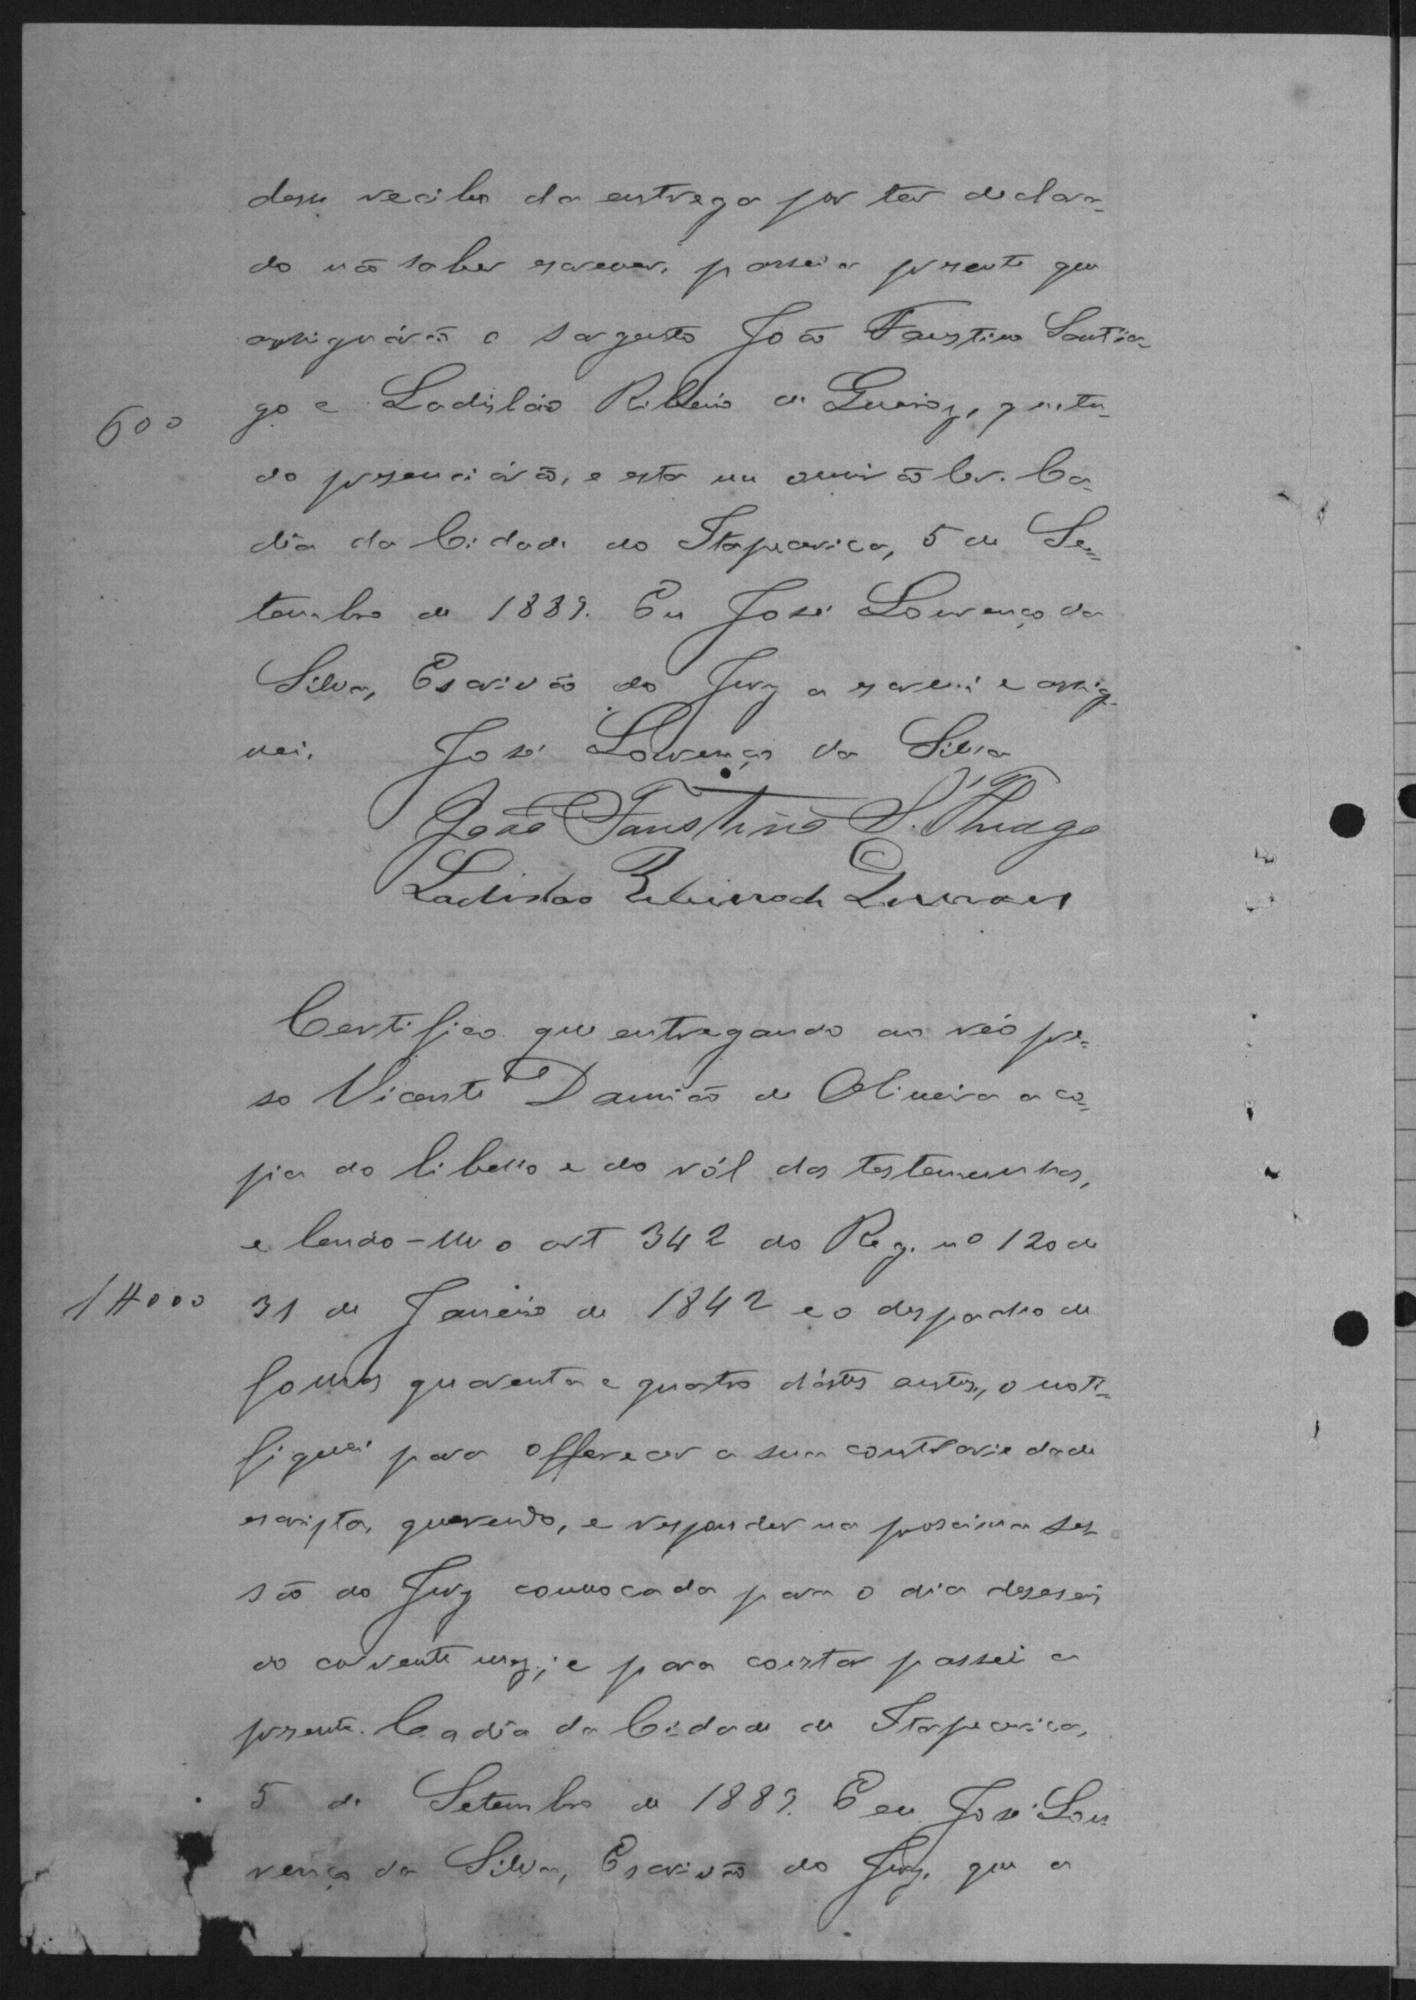 desse recibo da entrega por ter declara-
do não saber escrever, passei a presente que
assignárão o sargento João Faustino Santia-
600
go e Ladisláo Ribeiro de Queiroz, que tu-
do presenciárão, e esta me ouvirão ler. Ca-
dia da Cidade do Itapecerica, 5 de Se-
tembro de 1889. Eu José Lourenço da
Silva, Escrivão do Jury a escrevi e assig-
nei. José Lourenço da Silva
João Faustino S. Thiago
Ladislao Ribeiro de Queiroz
Certifico que entregando ao réo pre-
so Vicente Damião de Oliveira a co-
pia do libello e do ról das testemunhas,
e lendo-lhe o art 342 do Reg. nº 120 de
1#000
31 de Janeiro de 1842 e o despacho de
folhas quarenta e quatro dêstes autos, o noti-
fiquei para offerecer a sua contrariedade
escripta, querendo, e responder na proxima ses-
são do Jury convocada para o dia deseseis
do corrente mez; e para constar passei a
presente. Cadia da Cidade de Itapecerica,
5 de Setembro de 1889. E eu José Lou
renço da Silva, Escrivão do Jury, que a